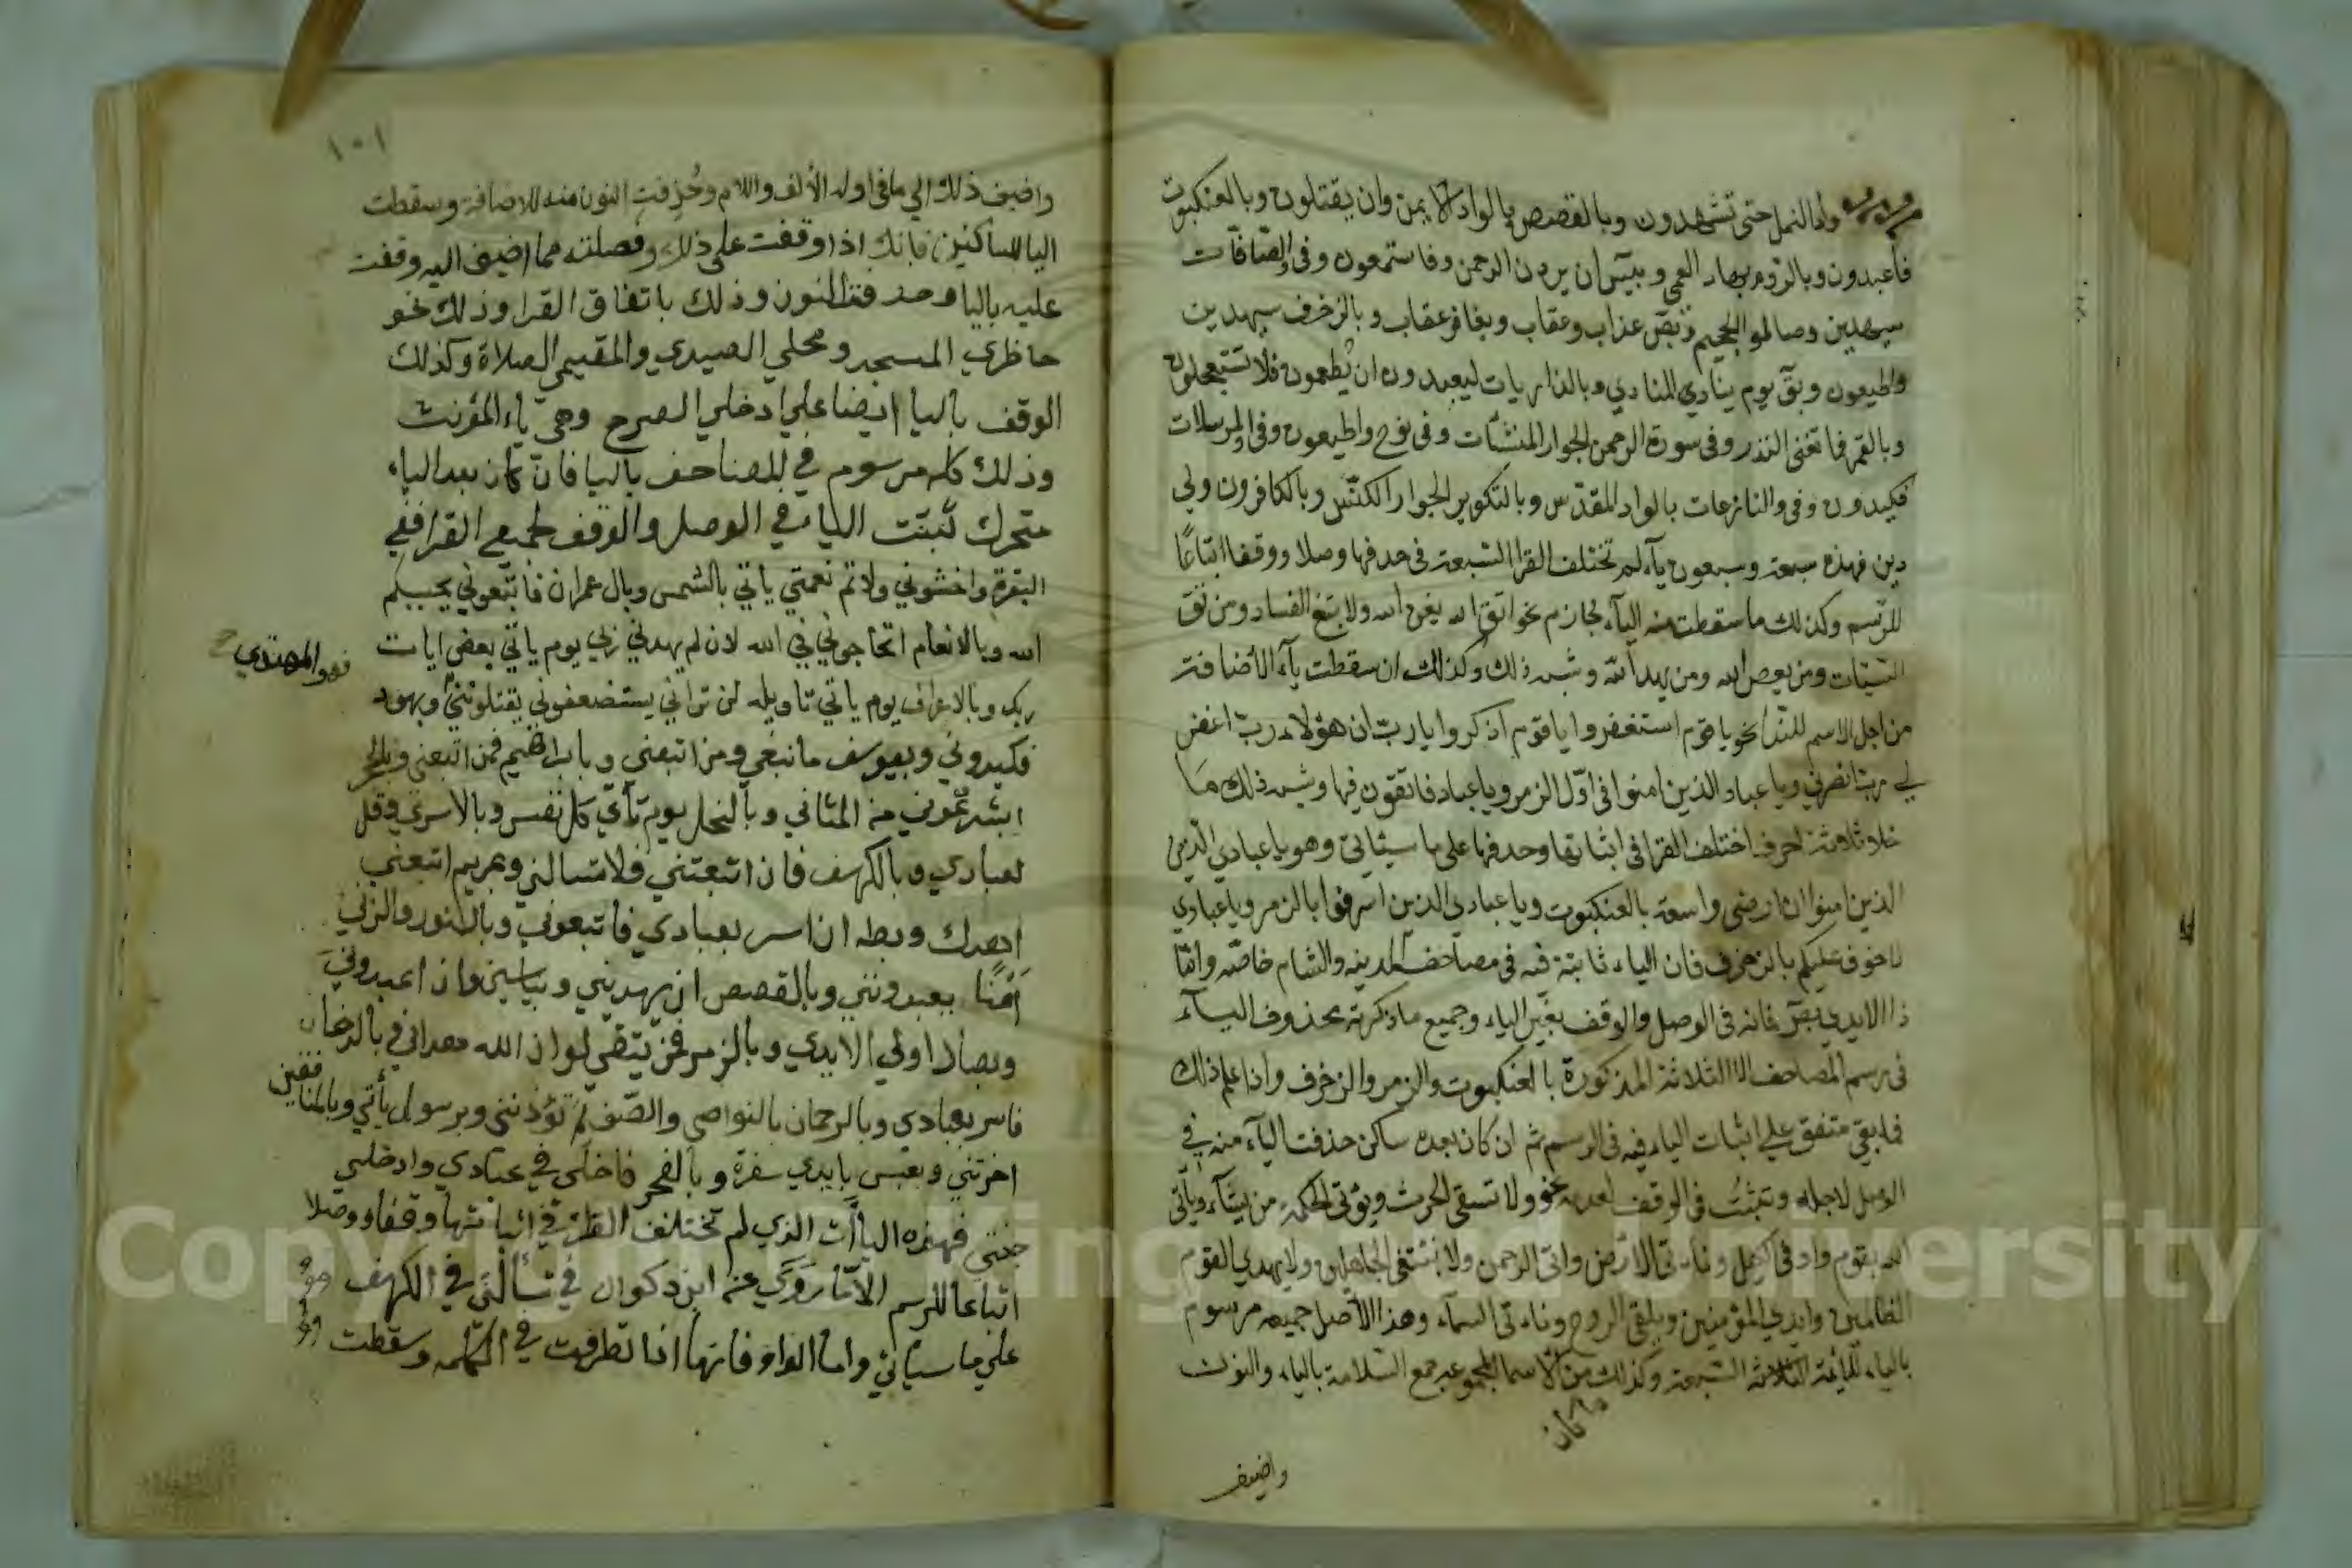 واد النمل حتى تشهدون وبالقصص بالواد الايمن وان يقتلون وبالعنكبوت
فاعبدون وبالروم بهاد العمي وبيس ان يردن الرحمن وفاسمعون وفي والصافات
سيهدين وصالوا الجحيم وبص عذاب وعقاب وبغافر عقاب وبالزخرف سيهدين
واطيعون وبق يوم ينادي المنادي وبالذاريات ليعبدون ان يطعمون فلا تستعجلون
وبالقمر فما تغن النذر وفي سورة الرحمن الجوار المنشآت وفي نوح واطيعون وفي والمرسلات
فكيدون وفي والنازعات بالواد المقدس وبالتكوير الجوار الكنس وبالكافرون ولي
دين فهذه سبعة وسبعون ياء لم تختلف القرا السبعة في حذفها وصلا ووقفا اتباعا
للرسم وكذلك ما سقطت منه الياء لجازم نحو اتق الله يغن الله ولا تبغ الفساد ومن تق
السيئات ومن يعص الله ومن يهد الله وشبه ذلك وكذلك ان سقطت ياء الاضافة
من اجل الاسم للندا نحو يا قوم استغفروا يا قوم اذكروا يا رب ان هؤلاء رب اغفر
لي رب انصرني ويا عباد الذين امنوا في اول الزمر ويا عباد فاتقون فيها وشبه ذلك ما
خلا ثلاثة احرف اختلف القرا في اثباتها وحذفها على ما سيأتي وهو يا عبادي الذين
الذين امنوا ان ارضي واسعة بالعنكبوت ويا عبادي الذين اسرفوا بالزمر ويا عبادي
لا خوف عليكم بالزخرف فان الياء ثابتة فيه في مصاحف المدينه والشام خاصه واما
ذا الايدي بص فانه في الوصل والوقف بغير الياء وجميع ما ذكرته محذوف الياء
في رسم المصاحف الا الثلاثة المذكورة بالعنكبوت والزمر والزخرف واذا علم ذلك
فما بقي متفق على اثبات الياء فيه في الرسم ثم ان كان بعده ساكن حذفت الياء منه في
الوصل لاجله وتثبت في الوقف لعدمه نحو ولا تسقي الحرث ويؤتي الحكمة من يشاء ويأتي
الله بقوم واوفي الكيل وناتي الارض واتي الرحمن ولا نبتغي الجاهلين ولا يهدي القوم
الظالمين وايدي المؤمنين ويلقي الروح وتاتي السماء وهذا الاصل جميعه مرسوم
بالياء للائمة الثلاثة السبعة وكذلك من الاسما المجموعه جمع السلامة بالياء والنون
كان
واضيف
١٠١
واضيف ذلك الي ما في اوله الألف واللام وحُذِفتِ النون منه للاضافة وسقطت
اليا للساكنين فانك اذا وقفت على ذلك وفصلته مما اضيف اليه وقفت
عليه باليا وحذفت النون وذلك باتفاق القرا وذلك نحو
حاظري المسجد ومحلي الصيدي والمقيمي الصلاة وكذلك
الوقف باليا ايضا على ادخلي الصرح وهي ياء المؤنث
وذلك كله مرسوم في المصاحف باليا فان كان بعد الياء
متحرك ثبتت الياء في الوصل والوقف لجميع القرا ففي
البقرة واخشوني ولاتم نعمتي ياتي بالشمس وبال عمران فاتبعوني يحببكم
الله وبالانعام اتحاجوني في الله لان لم يهدني ربي يوم ياتي بعض ايات
فهو المهتدي
ربك وبالاعراف يوم ياتي تاويله لن تراني يستضعفوني يقتلونني وبهود
فكيدوني وبيوسف ما نبغي ومن اتبعني وبابراهيم فمن اتبعني وبالحجر
ابشرتموني من المثاني وبالنحل يوم تأتي كل نفس وبالاسري وقل
لعبادي وبالكهف فان اتبعتني فلا تسالني وبمريم اتبعني
اهدك وبطه ان اسر بعبادي فاتبعوني وبالنور والزني
اَمْنًا يعبدونني وبالقصص ان يهديني وبياسين وان اعبدوني
وبصاد اولي الايدي وبالزمر فمن يتقي لو ان الله هداني وبالدخان
فاسر بعبادي وبالرحمان بالنواصي والصف لم تؤذنني وبرسول يأتي وبالمنافقين
اخرتني وبعبس بايدي سفرة وبالفجر فادخلي في عبادي وادخلي
جنتي فهذه الياآت الذي لم تختلف القرا في اثباتها وقفا ووصلا
اتباعا للرسم الا ما رَوَي عنه ابن ذكوان في تسألني في الكهف
على ما سيأتي واما الواو فانها اذا تطرفت في الكلمه وسقطت
Copyright © King Saud University